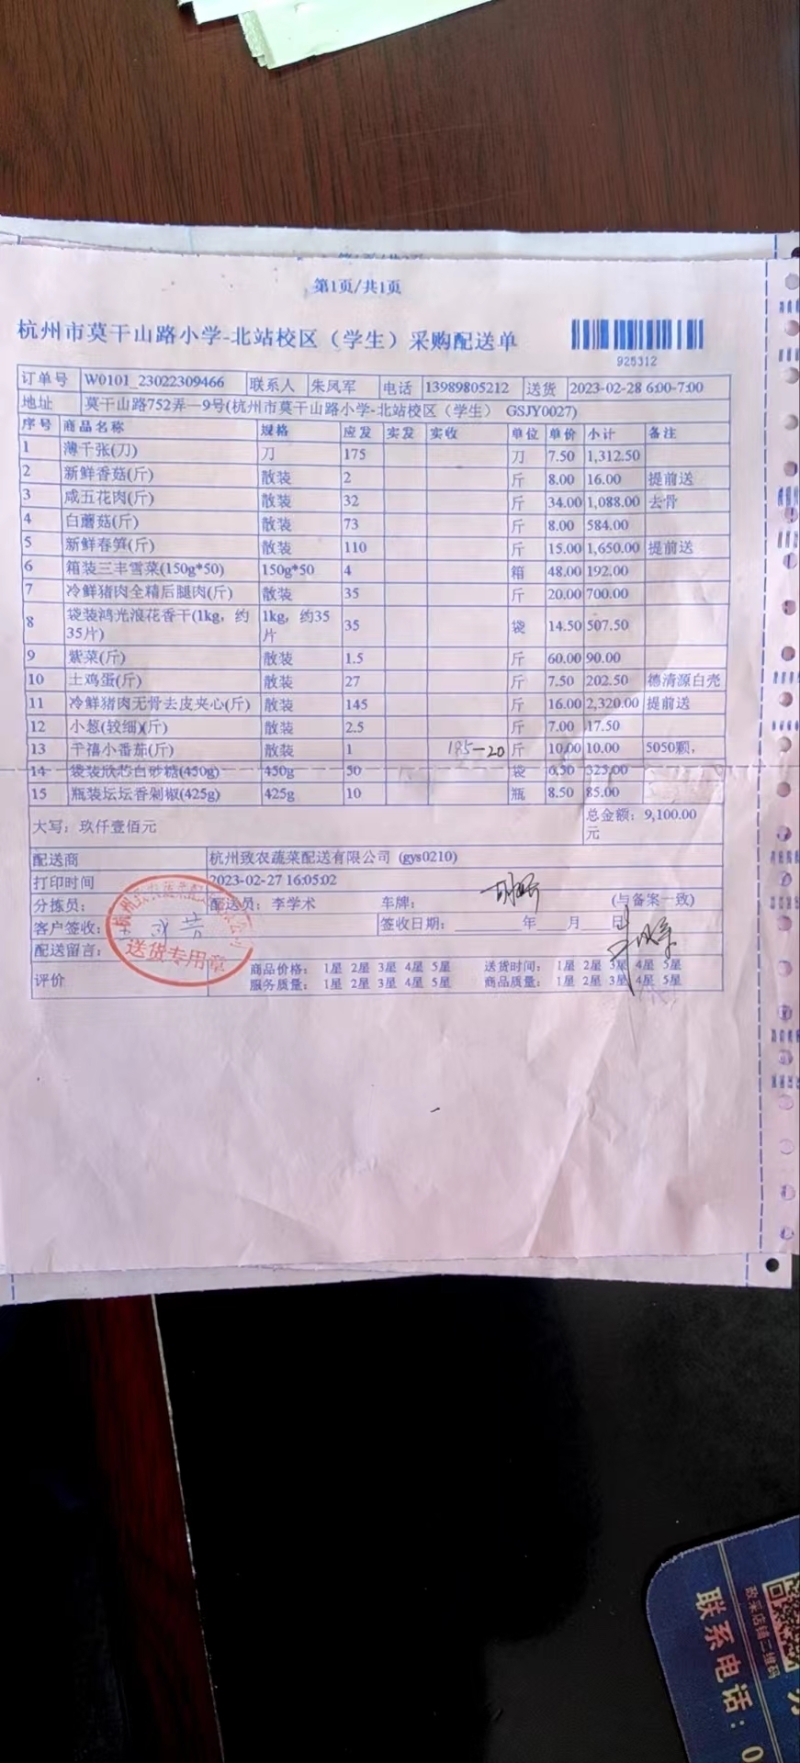 第1页/共1页
杭州市莫干山路小学-北站校区（学生）采购配送单
925312
订单号 W0101_23022309466 联系人 朱凤军 电话 13989805212 送货 2023-02-28 6:00-7:00
地址 莫干山路752弄一9号(杭州市莫干山路小学-北站校区（学生） GSJY0027)
序号 商品名称 规格 应发 实发 实收 单位 单价 小计 备注
1 薄千张(刀) 刀 175 刀 7.50 1,312.50
2 新鲜香菇(斤) 散装 2 斤 8.00 16.00 提前送
3 咸五花肉(斤) 散装 32 斤 34.00 1,088.00 去骨
4 白蘑菇(斤) 散装 73 斤 8.00 584.00
5 新鲜春笋(斤) 散装 110 斤 15.00 1,650.00 提前送
6 箱装三丰雪菜(150g*50) 150g*50 4 箱 48.00 192.00
7 冷鲜猪肉全精后腿肉(斤) 散装 35 斤 20.00 700.00
8 袋装鸿光浪花香干(1kg，约35片) 1kg，约35片 35 袋 14.50 507.50
9 紫菜(斤) 散装 1.5 斤 60.00 90.00
10 土鸡蛋(斤) 散装 27 斤 7.50 202.50 德清源白壳
11 冷鲜猪肉无骨去皮夹心(斤) 散装 145 斤 16.00 2,320.00 提前送
12 小葱(较细)(斤) 散装 2.5 斤 7.00 17.50
13 千禧小番茄(斤) 散装 1 185-20 斤 10.00 10.00 5050颗，
14 袋装欣芯白砂糖(450g) 450g 50 袋 6.50 325.00
15 瓶装坛坛香剁椒(425g) 425g 10 瓶 8.50 85.00
大写：玖仟壹佰元 总金额：9,100.00元
配送商 杭州致农蔬菜配送有限公司 (gys0210)
打印时间 2023-02-27 16:05:02
分拣员： 配送员：李学术 车牌： (与备案一致)
客户签收： 签收日期：________年___月___日
配送留言：
送货专用章
评价 商品价格： 1星 2星 3星 4星 5星 送货时间： 1星 2星 3星 4星 5星
服务质量： 1星 2星 3星 4星 5星 商品质量： 1星 2星 3星 4星 5星
联系电话：0